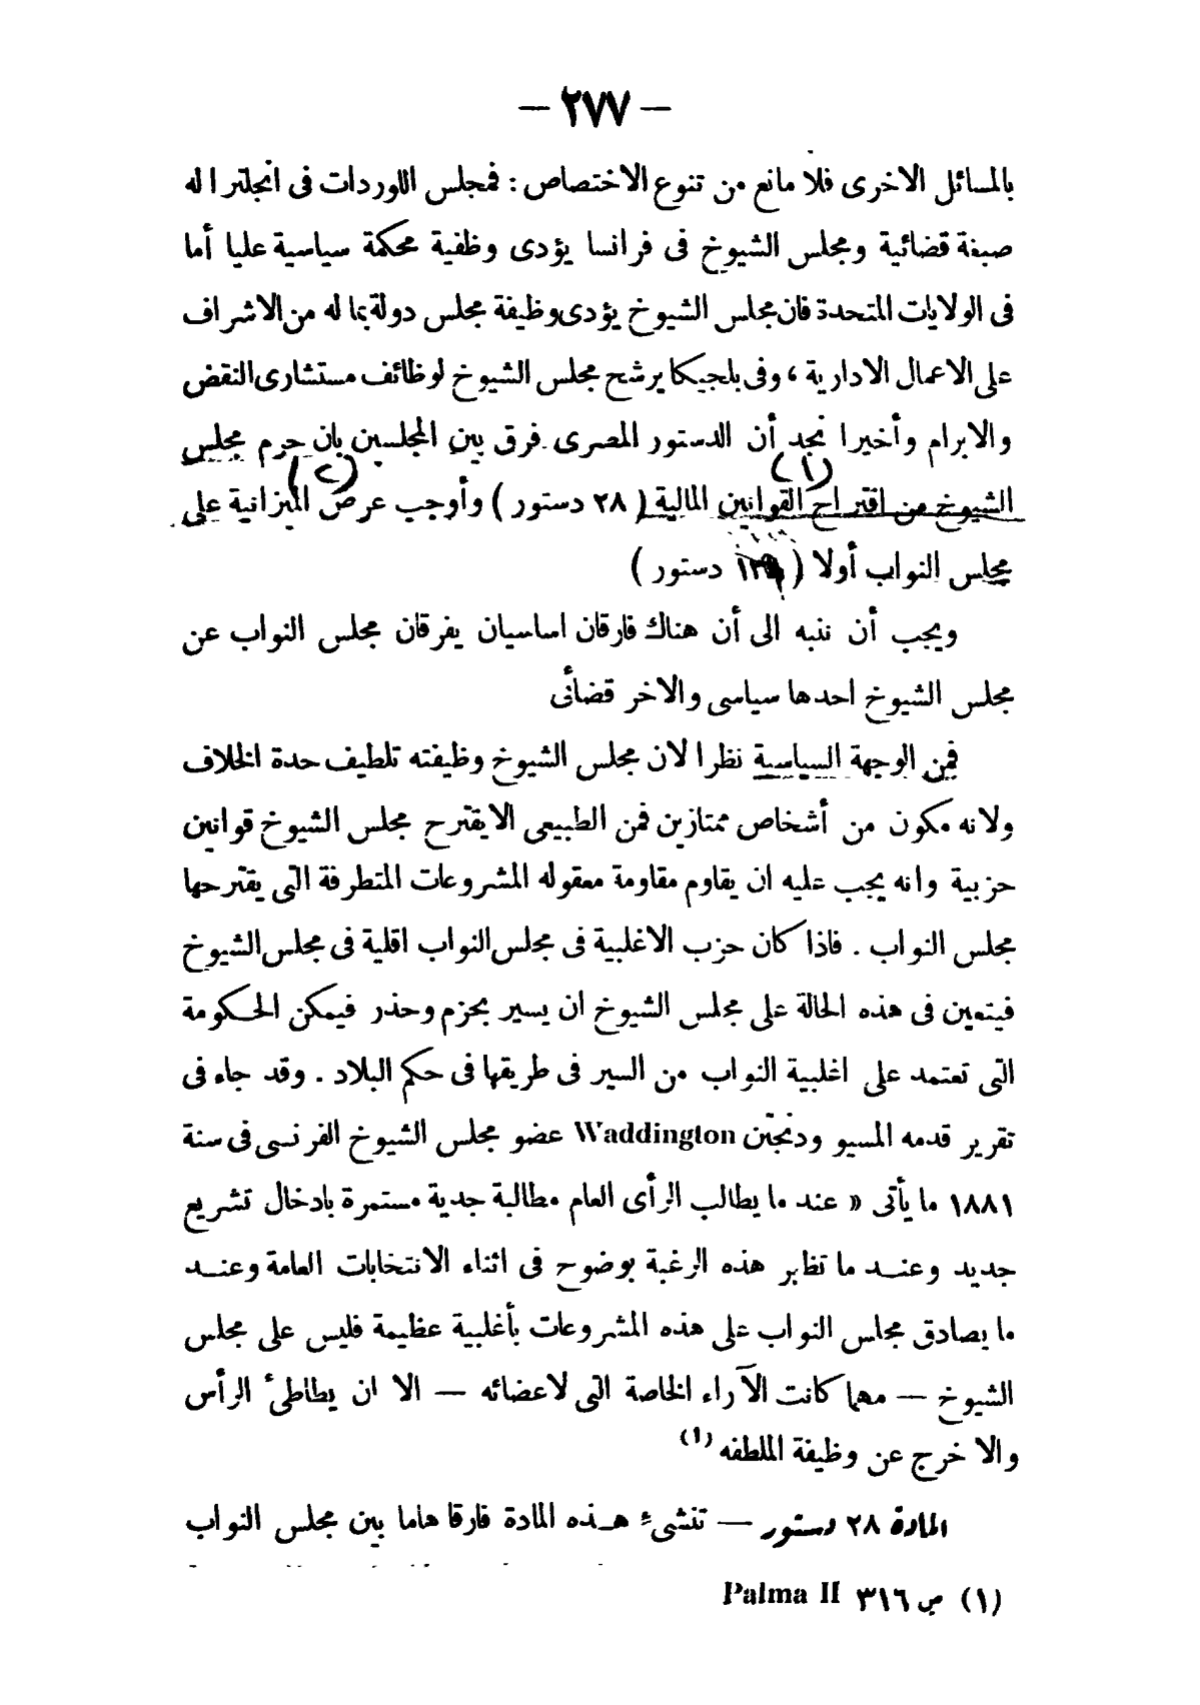 — ٢٧٧ —
بالمسائل الاخرى فلا مانع من تنوع الاختصاص : فمجلس اللوردات فى انجلترا له
صبغة قضائية ومجلس الشيوخ فى فرانسا يؤدى وظفية محكمة سياسية عليا أما
فى الولايات المتحدة فان مجلس الشيوخ يؤدى وظيفة مجلس دولة بما له من الاشراف
على الاعمال الادارية ، وفى بلجيكا يرشح مجلس الشيوخ لوظائف مستشارى النقض
والابرام وأخيرا نجد أن الدستور المصرى فرق بين المجلسين بان حرم مجلس
(١) (٢)
الشيوخ من اقتراح القوانين المالية ( ٢٨ دستور ) وأوجب عرض الميزانية على
مجلس النواب أولا ( دستور )
ويجب أن ننبه الى أن هناك فارقان اساسيان يفرقان مجلس النواب عن
مجلس الشيوخ احدها سياسى والاخر قضائى
فمن الوجهة السياسية نظرا لان مجلس الشيوخ وظيفته تلطيف حدة الخلاف
ولانه مكون من أشخاص ممتازين فمن الطبيعى الا يقترح مجلس الشيوخ قوانين
حزبية وانه يجب عليه ان يقاوم مقاومة معقوله المشروعات المتطرفة التى يقترحها
مجلس النواب . فاذا كان حزب الاغلبية فى مجلس النواب اقلية فى مجلس الشيوخ
فيتعين فى هذه الحالة على مجلس الشيوخ ان يسير بحزم وحذر فيمكن الحكومة
التى تعتمد على اغلبية النواب من السير فى طريقها فى حكم البلاد . وقد جاء فى
تقرير قدمه المسيو ودنجتن Waddington عضو مجلس الشيوخ الفرنسى فى سنة
١٨٨١ ما يأتى « عند ما يطالب الرأى العام مطالبة جدية مستمرة بادخال تشريع
جديد وعند ما تظهر هذه الرغبة بوضوح فى اثناء الانتخابات العامة وعند
ما يصادق مجلس النواب على هذه المشروعات بأغلبية عظيمة فليس على مجلس
الشيوخ — مهما كانت الآراء الخاصة التى لاعضائه — الا ان يطاطىء الرأس
والا خرج عن وظيفة الملطفه (١)
المادة ٢٨ دستور — تنشىء هذه المادة فارقا هاما بين مجلس النواب
(١) ص ٣١٦ Palma II